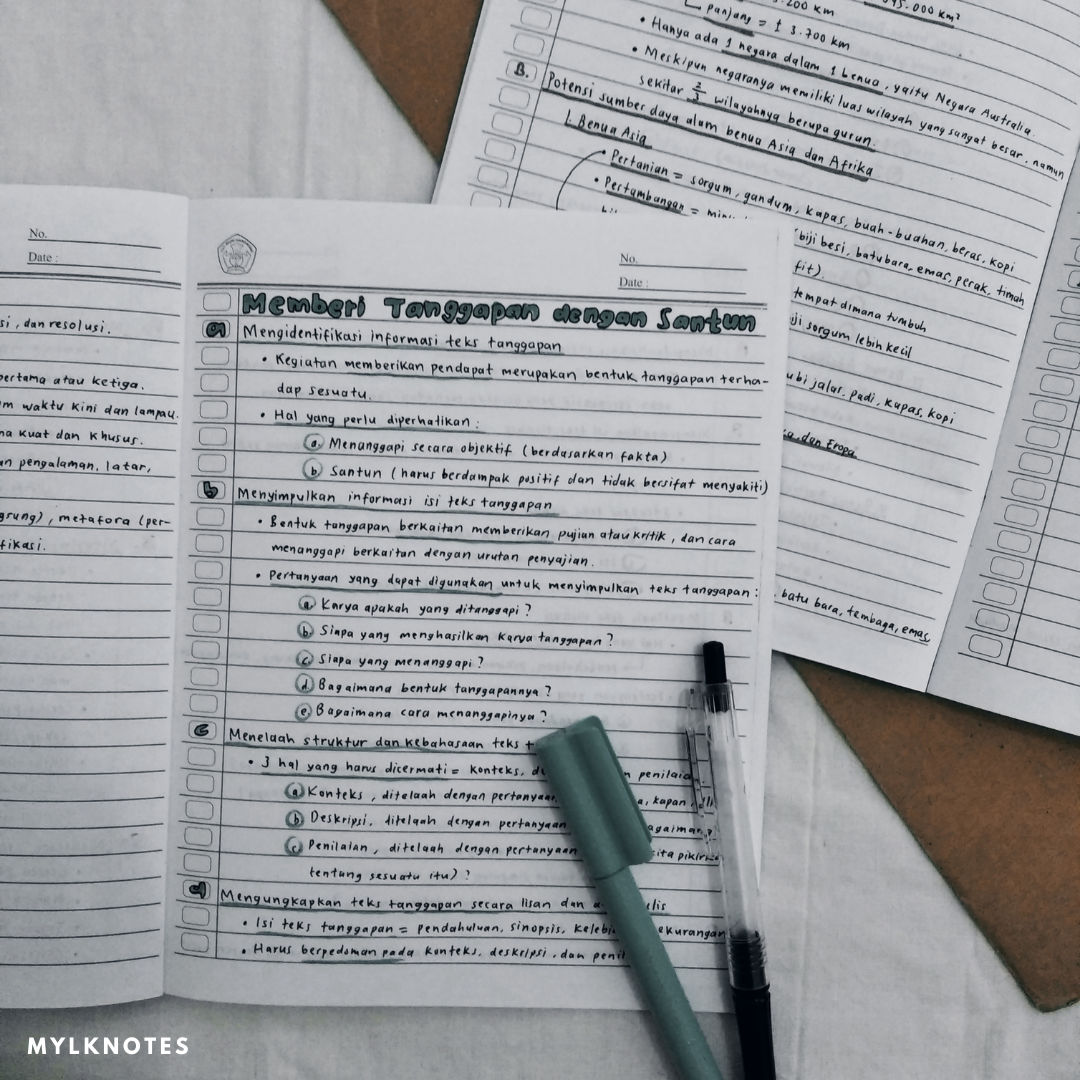 3.200 km
panjang = ± 3.700 km
• Hanya ada 1 negara dalam 1 benua, yaitu Negara Australia.
• Meskipun negaranya memiliki luas wilayah yang sangat besar, namun
sekitar 2/3 wilayahnya berupa gurun.
B. Potensi sumber daya alam benua Asia dan Afrika
1. Benua Asia
• Pertanian = sorgum, gandum, kapas, buah-buahan, beras, kopi
• Pertambangan =
(biji besi, batubara, emas, perak, timah
fit).
tempat dimana tumbuh
ji sorgum lebih kecil
ubi jalar, padi, kapas, kopi
dan Eropa
batu bara, tembaga, emas,
No.
Date :
si, dan resolusi.
pertama atau ketiga.
m waktu kini dan lampau.
na kuat dan khusus.
an pengalaman, latar,
gsung), metafora (per-
fikasi.
No.
Date :
Memberi Tanggapan dengan Santun
a Mengidentifikasi informasi teks tanggapan
• Kegiatan memberikan pendapat merupakan bentuk tanggapan terha-
dap sesuatu.
• Hal yang perlu diperhatikan :
a. Menanggapi secara objektif (berdasarkan fakta)
b. Santun (harus berdampak positif dan tidak bersifat menyakiti)
b Menyimpulkan informasi isi teks tanggapan
• Bentuk tanggapan berkaitan memberikan pujian atau kritik, dan cara
menanggapi berkaitan dengan urutan penyajian.
• Pertanyaan yang dapat digunakan untuk menyimpulkan teks tanggapan :
a. Karya apakah yang ditanggapi ?
b. Siapa yang menghasilkan karya tanggapan ?
c. Siapa yang menanggapi ?
d. Bagaimana bentuk tanggapannya ?
e. Bagaimana cara menanggapinya ?
c Menelaah struktur dan kebahasaan teks t
• 3 hal yang harus dicermati = konteks, penilaia
a. Konteks, ditelaah dengan pertanyaan a, kapan,
b. Deskripsi, ditelaah dengan pertanyaan agaimana
c. Penilaian, ditelaah dengan pertanyaan kita pikirk
tentang sesuatu itu) ?
d Mengungkapkan teks tanggapan secara lisan dan lis
• Isi teks tanggapan = pendahuluan, sinopsis, kelebi ekurangan
• Harus berpedoman pada konteks, deskripsi, dan penil
MYLKNOTES